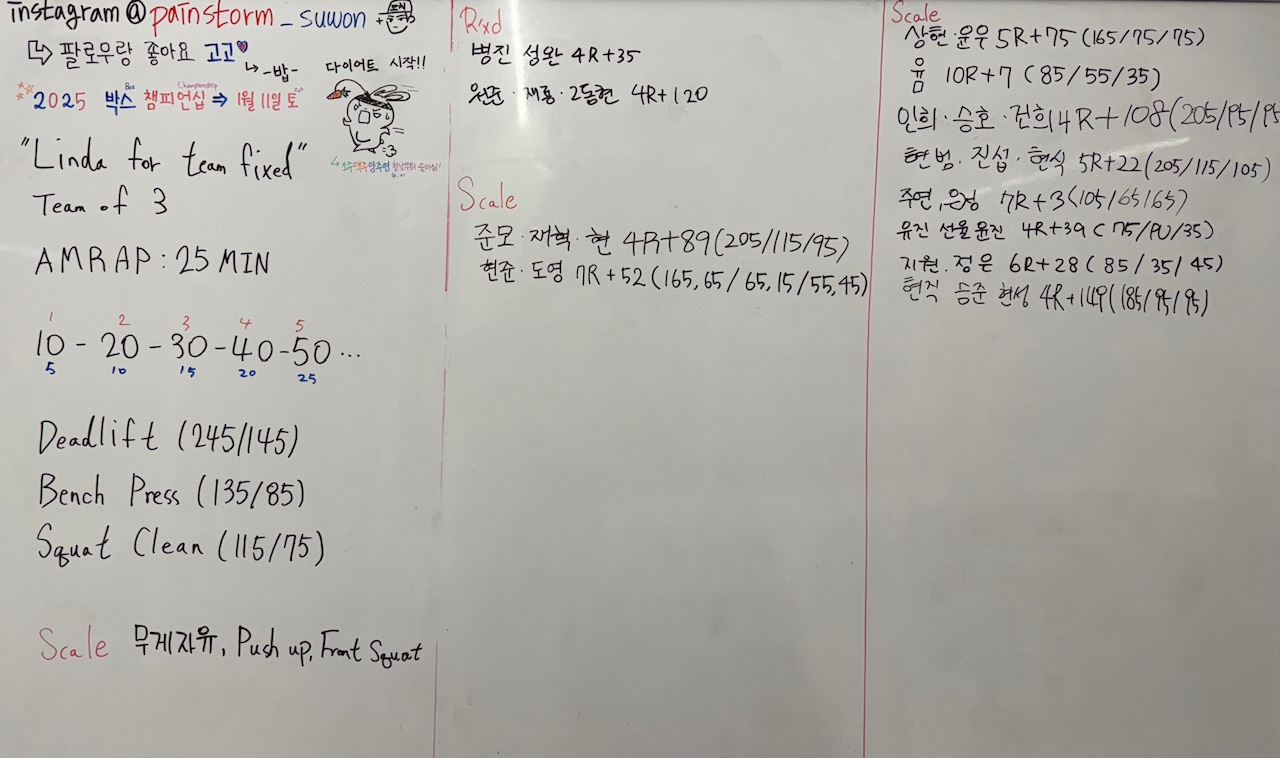 instagram@painstorm_suwon +
↳ 팔로우랑 좋아요 고고♥
↳ -밥-
2025 박스 챔피언십 ⇒ 1월 11일 토
Box Championship
다이어트 시작!!
"Linda for team fixed"
Team of 3
AMRAP : 25 MIN
1 2 3 4 5
10 - 20 - 30 - 40 - 50 ...
5 10 15 20 25
Deadlift (245/145)
Bench Press (135/85)
Squat Clean (115/75)
Scale 무게자유, Push up, Front Squat
Rxd
병진 성완 4R+35
원준·재홍·2동현 4R+120
Scale
준모·재혁·현 4R+89(205/115/95)
현준·도영 7R+52(165,65/65,15/55,45)
Scale
상헌·윤우 5R+75(165/75/75)
10R+7 (85/55/35)
인희·승호·건희 4R+108(205/95/95
현범·진섭·현식 5R+22(205/115/105)
주연, 은정 7R+3(105/65/65)
유진 선율 윤진 4R+39(75/PU/35)
지원.정은 6R+28(85/35/45)
현직 승준 현성 4R+149(185/95/95)